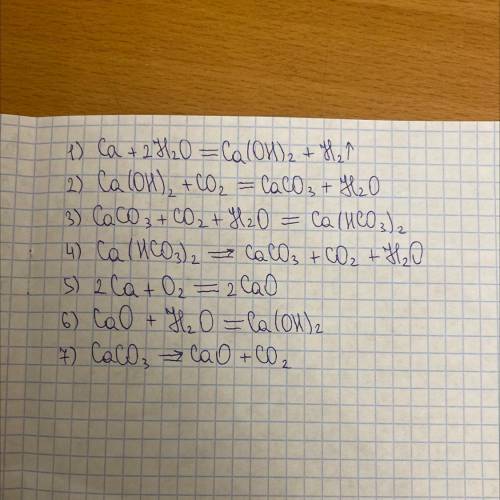 1) Ca + 2H₂O = Ca(OH)₂ + H₂↑
2) Ca(OH)₂ + CO₂ = CaCO₃ + H₂O
3) CaCO₃ + CO₂ + H₂O = Ca(HCO₃)₂
4) Ca(HCO₃)₂ ⇒ CaCO₃ + CO₂ + H₂O
5) 2Ca + O₂ = 2CaO
6) CaO + H₂O = Ca(OH)₂
7) CaCO₃ ⇒ CaO + CO₂